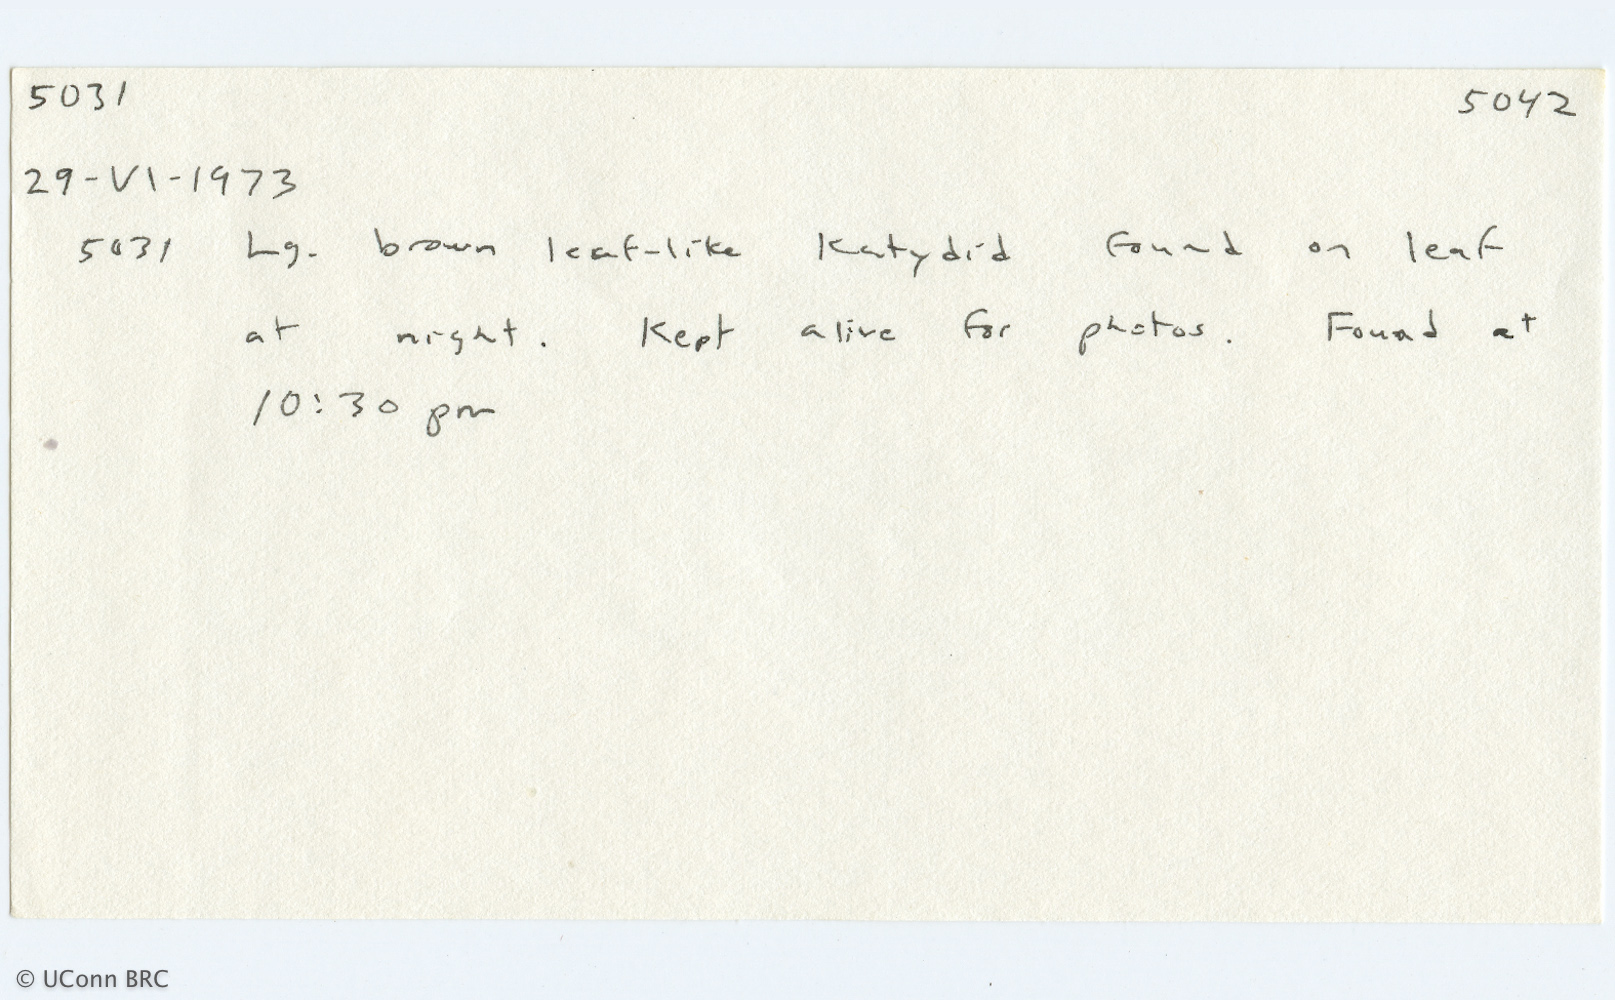 5031 5042
29-VI-1973
5031 Lg. brown leaf-like katydid found on leaf
at night. Kept alive for photos. Found at
10:30 pm
© UConn BRC